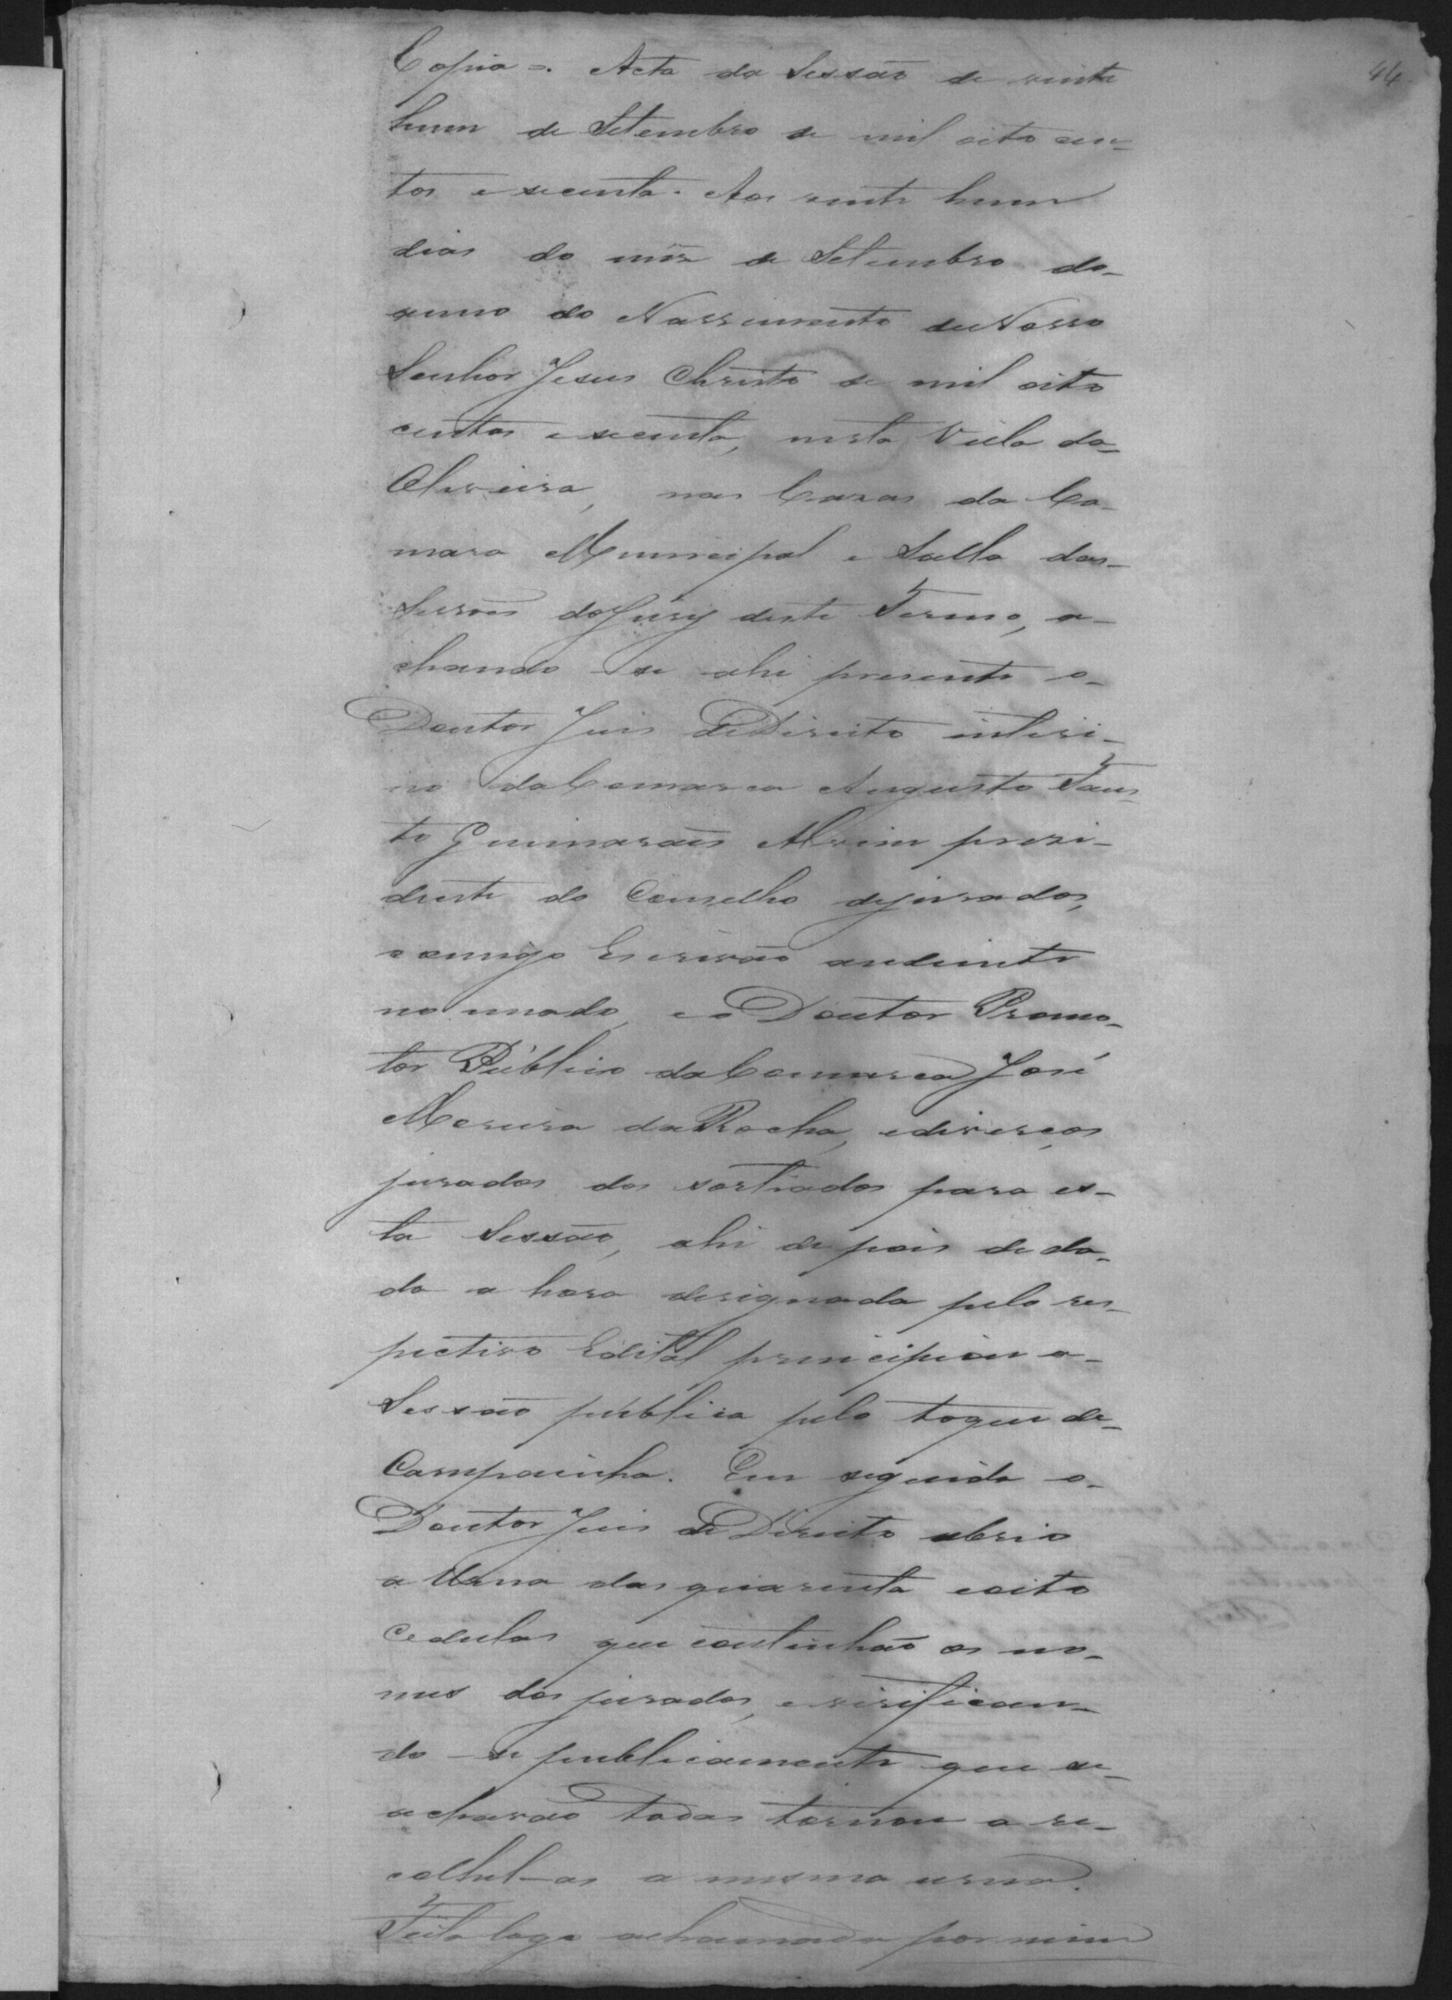 44
Copia =. Acta da Sessão de vinte
hum de Setembro de mil oito cen-
tos e secenta. Aos vinte hum
dias do mês de Setembro do-
anno do Nassimento de Nosso
Senhor Jesus Christo de mil oito
centos e secenta, nesta Villa da-
Oliveira, nas Cazas da Ca-
mara Municipal e Salla das-
Sessões do Jury deste Termo, a-
chando-se ahi presente o-
Doutor Juis de Direito interi-
no da Comarca Augusto Faus-
to Guimarães Alvim prezi-
dente do Conselho de jurados,
comigo Escrivão ao diante
no miado, e o Doutor Promo-
tor Público da Comarca José
Moreira da Rocha, e diverços
jurados dos sortiados para es-
ta Sessão, ahi de pois de da-
da a hora designada pelo res-
pectivo Edital principiou a-
Sessão pública pelo toque de-
Campainha. Em seguida o-
Doutor Juis de Direito abrio
a Urna das quarenta e oito
cedulas que continhão os no-
mes dos jurados, e virifican-
do-se publicamente que se-
acharão todas tornou a re-
colhel-as a mesma urna.
Feita logo a chamada por mim